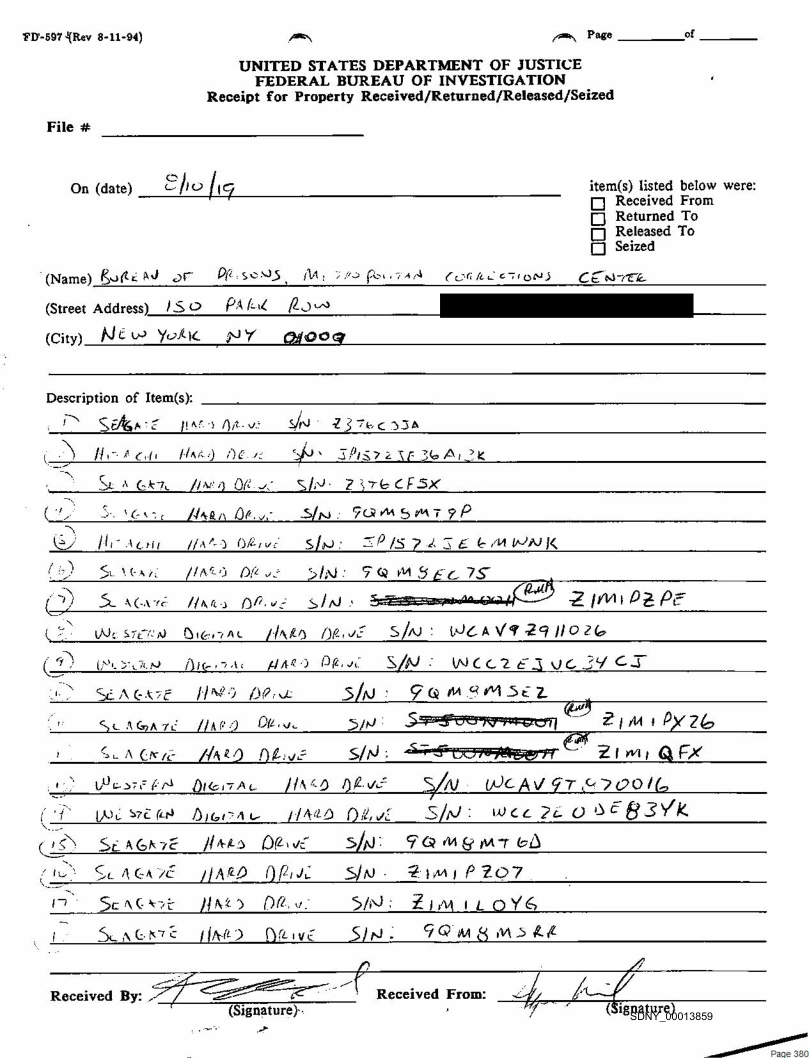 FD-597 (Rev 8-11-94)
Page ____ of ____
UNITED STATES DEPARTMENT OF JUSTICE
FEDERAL BUREAU OF INVESTIGATION
Receipt for Property Received/Returned/Released/Seized
File #
On (date) 8/10/19
item(s) listed below were:
Received From
Returned To
Released To
Seized
(Name) BUREAU OF PRISONS, METROPOLITAN CORRECTIONS CENTER
(Street Address) 150 PARK ROW
(City) NEW YORK NY
Description of Item(s):
1 SEAGATE HARD DRIVE S/N: Z376CJJA
HITACHI HARD DRIVE S/N: JP1572JE36A13K
SEAGATE HARD DRIVE S/N: Z376CF5X
(4) SEAGATE HARD DRIVE S/N: 9QM5MT9P
(5) HITACHI HARD DRIVE S/N: JP1572JE6MWNK
(6) SEAGATE HARD DRIVE S/N: 9QM9EC75
(7) SEAGATE HARD DRIVE S/N: Z1M1PZPE
WESTERN DIGITAL HARD DRIVE S/N: WCAV9Z911026
(9) WESTERN DIGITAL HARD DRIVE S/N: WCC2EJUC34CJ
SEAGATE HARD DRIVE S/N: 9QM8MSEZ
SEAGATE HARD DRIVE S/N: Z1M1PX26
SEAGATE HARD DRIVE S/N: Z1M1QFX
WESTERN DIGITAL HARD DRIVE S/N: WCAV9T970016
WESTERN DIGITAL HARD DRIVE S/N: WCC2E0DEB3YK
(15) SEAGATE HARD DRIVE S/N: 9QM8MT6D
(16) SEAGATE HARD DRIVE S/N: Z1M1PZ07
17 SEAGATE HARD DRIVE S/N: Z1M1L0YG
SEAGATE HARD DRIVE S/N: 9QM8MSRR
Received By:
(Signature)
Received From:
(Signature)
SDNY_00013859
Page 380